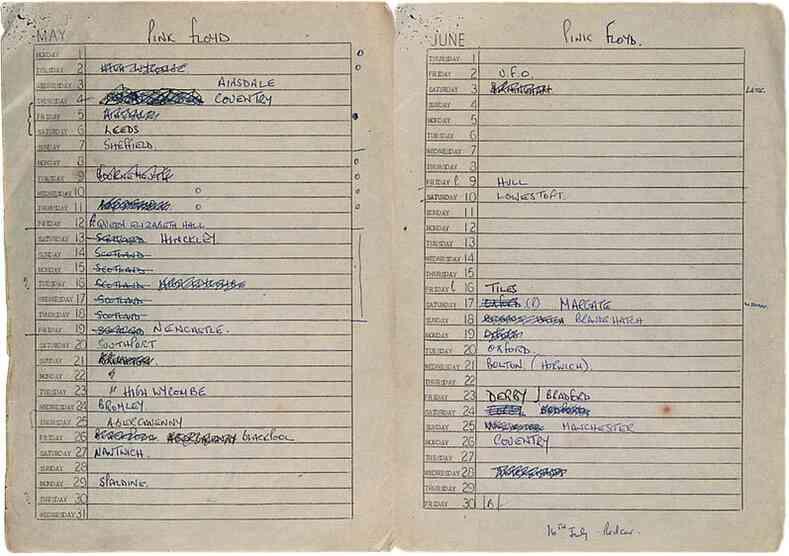 MAY PINK FLOYD
MONDAY 1
TUESDAY 2 HIGH WYCOMBE
WEDNESDAY 3 AINSDALE
THURSDAY 4 COVENTRY
FRIDAY 5
SATURDAY 6 LEEDS
SUNDAY 7 SHEFFIELD.
MONDAY 8
TUESDAY 9 BOURNEMOUTH
WEDNESDAY 10
THURSDAY 11
FRIDAY 12 QUEEN ELIZABETH HALL
SATURDAY 13 SCOTLAND HINCKLEY
SUNDAY 14 SCOTLAND
MONDAY 15 SCOTLAND
TUESDAY 16 SCOTLAND
WEDNESDAY 17 SCOTLAND
THURSDAY 18 SCOTLAND
FRIDAY 19 NEWCASTLE.
SATURDAY 20 SOUTHPORT
SUNDAY 21
MONDAY 22
TUESDAY 23 " HIGH WYCOMBE
WEDNESDAY 24 BROMLEY
THURSDAY 25 ABERGAVENNY
FRIDAY 26 BLACKPOOL
SATURDAY 27 NANTWICH.
SUNDAY 28
MONDAY 29 SPALDING.
TUESDAY 30
WEDNESDAY 31
JUNE PINK FLOYD.
THURSDAY 1
FRIDAY 2 U.F.O.
SATURDAY 3
SUNDAY 4
MONDAY 5
TUESDAY 6
WEDNESDAY 7
THURSDAY 8
FRIDAY 9 HULL
SATURDAY 10 LOWESTOFT.
SUNDAY 11
MONDAY 12
TUESDAY 13
WEDNESDAY 14
THURSDAY 15
FRIDAY 16 TILES
SATURDAY 17 MARGATE
SUNDAY 18 BRANDS HATCH
MONDAY 19
TUESDAY 20 OXFORD.
WEDNESDAY 21 BOLTON. (HORWICH).
THURSDAY 22
FRIDAY 23 DERBY BRADFORD
SATURDAY 24
SUNDAY 25 MANCHESTER
MONDAY 26 COVENTRY
TUESDAY 27
WEDNESDAY 28
THURSDAY 29
FRIDAY 30
16TH July - Redcar.